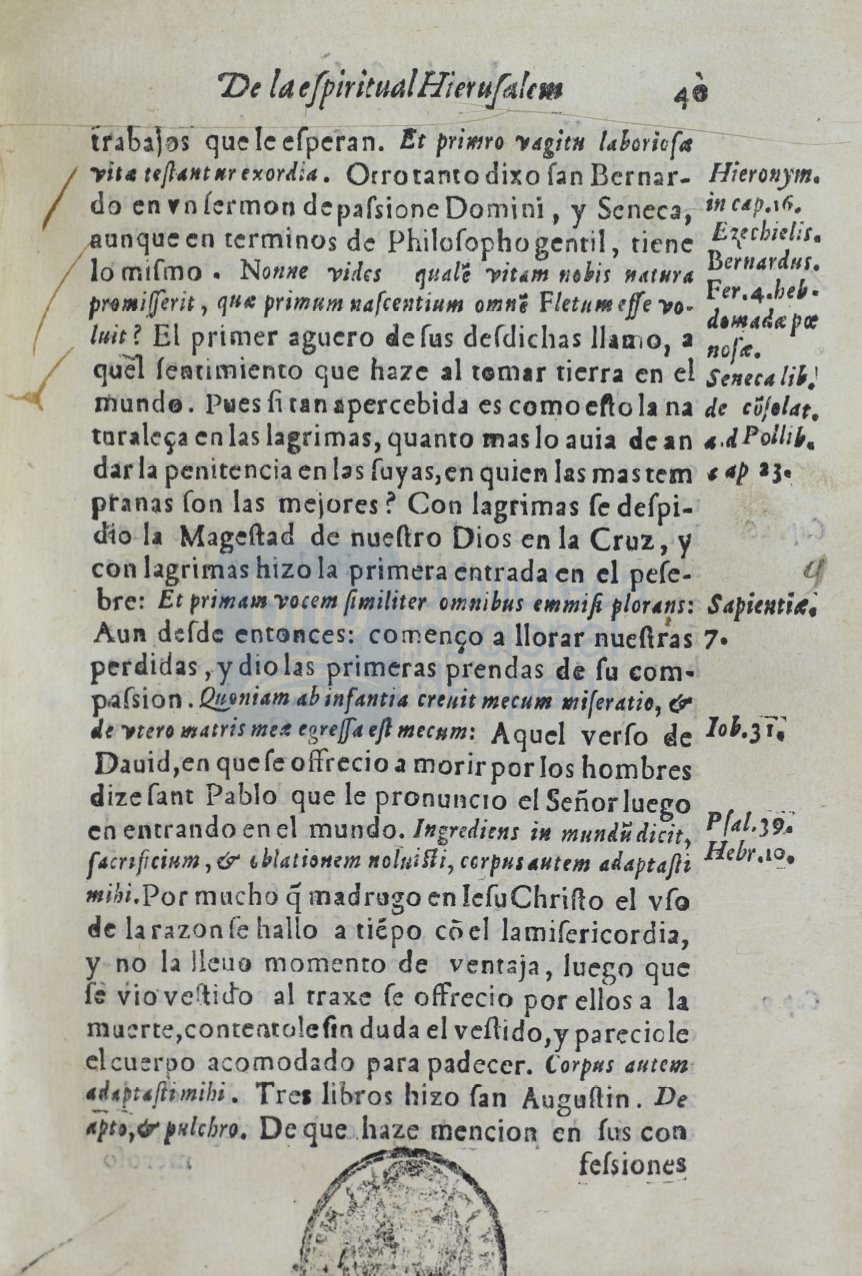 De la eſpiritual Hieruſalem 40
trabajos que le eſperan. Et primro vagitu laborioſa
vita teſtantur exordia. Otro tanto dixo ſan Bernar-
do en vn ſermon de paſsione Domini, y Seneca,
aunque en terminos de Philoſopho gentil, tiene
lo miſmo. Nonne vides qualẽ vitam nobis natura
promiſſerit, quæ primum naſcentium omnẽ Fletum eſſe vo-
luit? El primer aguero de ſus deſdichas llamo, a
quel ſentimiento que haze al tomar tierra en el
mundo. Pues ſi tan apercebida es como eſto la na
turaleça en las lagrimas, quanto mas lo auia de an
dar la penitencia en las ſuyas, en quien las mas tem
pranas ſon las mejores? Con lagrimas ſe deſpi-
dio la Mageſtad de nueſtro Dios en la Cruz, y
con lagrimas hizo la primera entrada en el peſe-
bre: Et primam vocem ſimiliter omnibus emmiſi plorans:
Aun deſde entonces: començo a llorar nueſtras
perdidas, y dio las primeras prendas de ſu com-
paſsion. Quoniam ab infantia creuit mecum miſeratio, &
de vtero matris meæ egreſſa eſt mecum: Aquel verſo de
Dauid, en que ſe offrecio a morir por los hombres
dize ſant Pablo que le pronuncio el Señor luego
en entrando en el mundo. Ingrediens in mundũ dicit,
ſacrificium, & oblationem noluiſti, corpus autem adaptaſti
mihi. Por mucho q̃ madrugo en Ieſu Chriſto el vſo
de la razon ſe hallo a tiẽpo cõ el la miſericordia,
y no la lleuo momento de ventaja, luego que
ſe vio veſtido al traxe ſe offrecio por ellos a la
muerte, contentole ſin duda el veſtido, y pareciole
el cuerpo acomodado para padecer. Corpus autem
adaptaſti mihi. Tres libros hizo ſan Auguſtin. De
apto, & pulchro. De que haze mencion en ſus con
feſsiones
Hieronym.
in cap.16.
Ezechielis.
Bernardus.
Fer.4.heb-
domadæ pœ
noſæ.
Seneca lib.
de cõſolat.
a.d Pollib.
cap 23.
Sapientiæ.
7.
Iob.31.
Pſal.39.
Hebr.10.